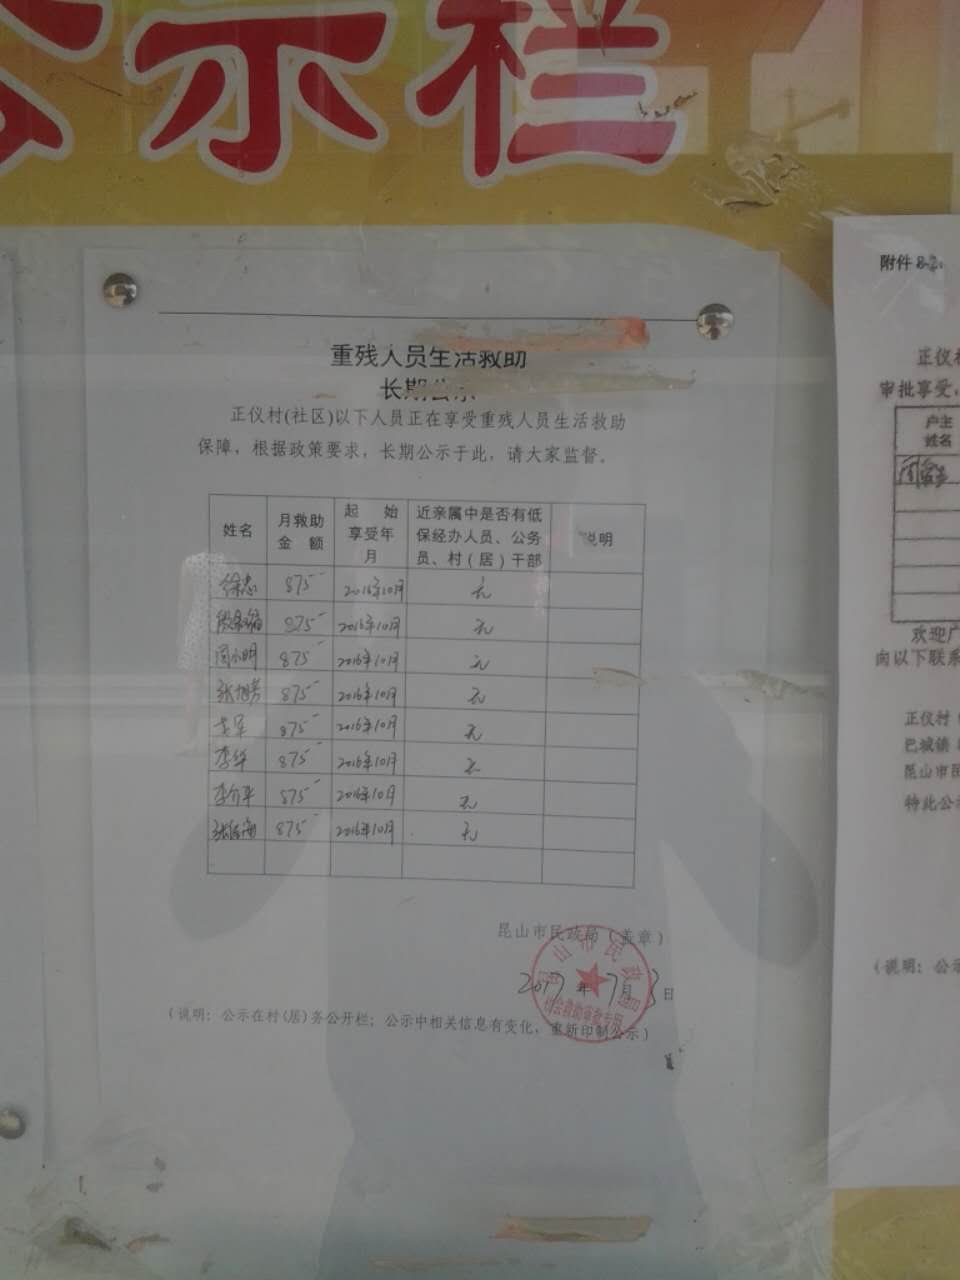 公示栏
重残人员生活救助
长期公示
正仪村(社区)以下人员正在享受重残人员生活救助
保障，根据政策要求，长期公示于此，请大家监督。
姓名 月救助金额 起始享受年月 近亲属中是否有低保经办人员、公务员、村（居）干部 说明
徐志 875 2016年10月 无
875 2016年10月 无
周小明 875 2016年10月 无
875 2016年10月 无
李军 875 2016年10月 无
李华 875 2016年10月 无
李介平 875 2016年10月 无
875 2016年10月 无
昆山市民政局（盖章）
2017年7月3日
昆山市民政局
社会救助审批专用
(说明：公示在村(居)务公开栏；公示中相关信息有变化，重新印制公示)
附件8-2:
正仪村
审批享受，
户主
姓名
欢迎广
向以下联系
正仪村（
巴城镇
昆山市民
特此公示
（说明：公示